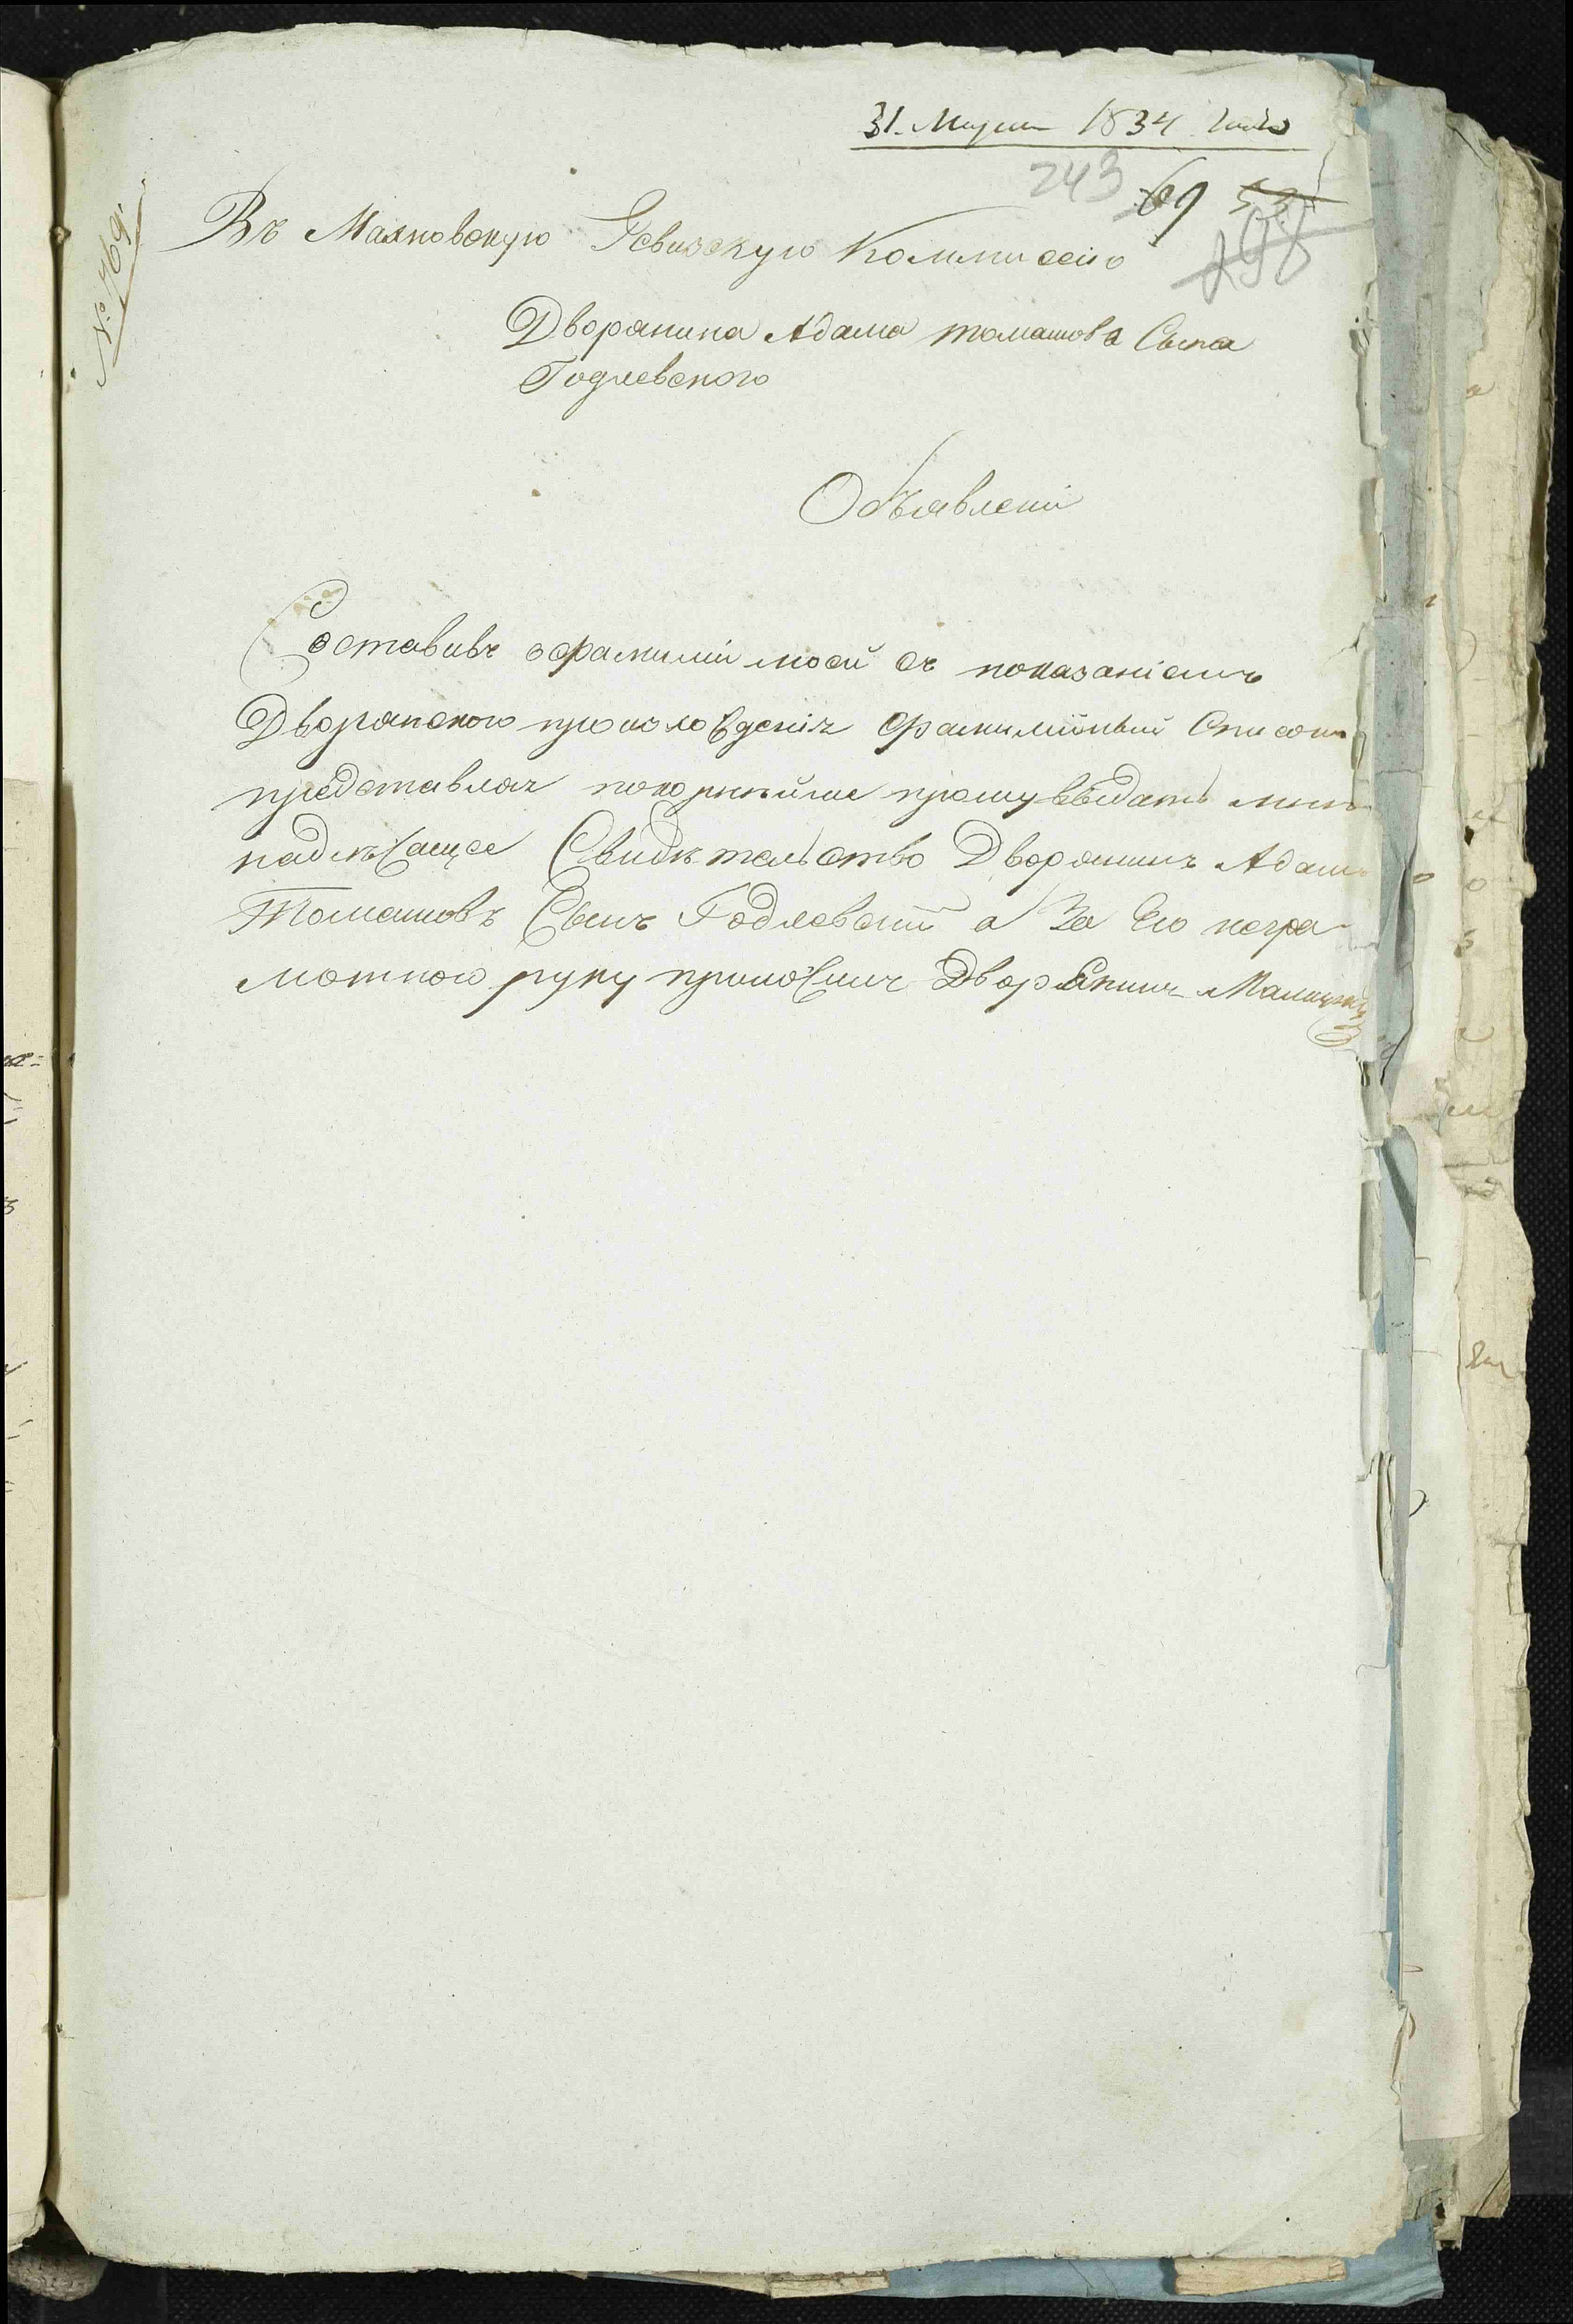 31. Марта 1834 года
243 69
198
№ 769.
Въ Маяковскую Ревизскую Коммиссію
Дворянина Адама томашова Сына
Годлевского
Объявленіи
Составивъ о фамиліи моей съ показаніемъ
Дворянского происхожденія фамилійный Списокъ
представляя покорнѣйше прошу выдать мнѣ
надлѣжащее Свидѣтельство Дворянинъ Адамъ
Томашовъ Сынъ Годлевскій а За Его негра-
мотного руку приложилъ Дворянинъ